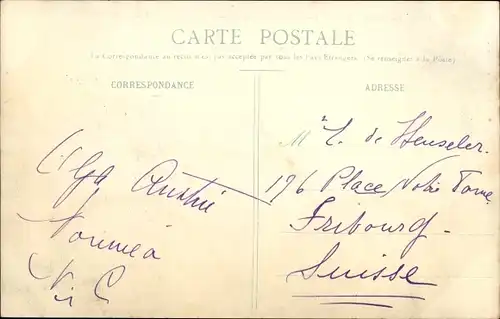 CARTE POSTALE
La Correspondance au recto n'est pas acceptée par tous les Pays Étrangers. (Se renseigner à la Poste)
CORRESPONDANCE
ADRESSE
Olga Austin
Nouméa
N.C
M. L. de Henseler.
196 Place Notre Dame
Fribourg.
Suisse